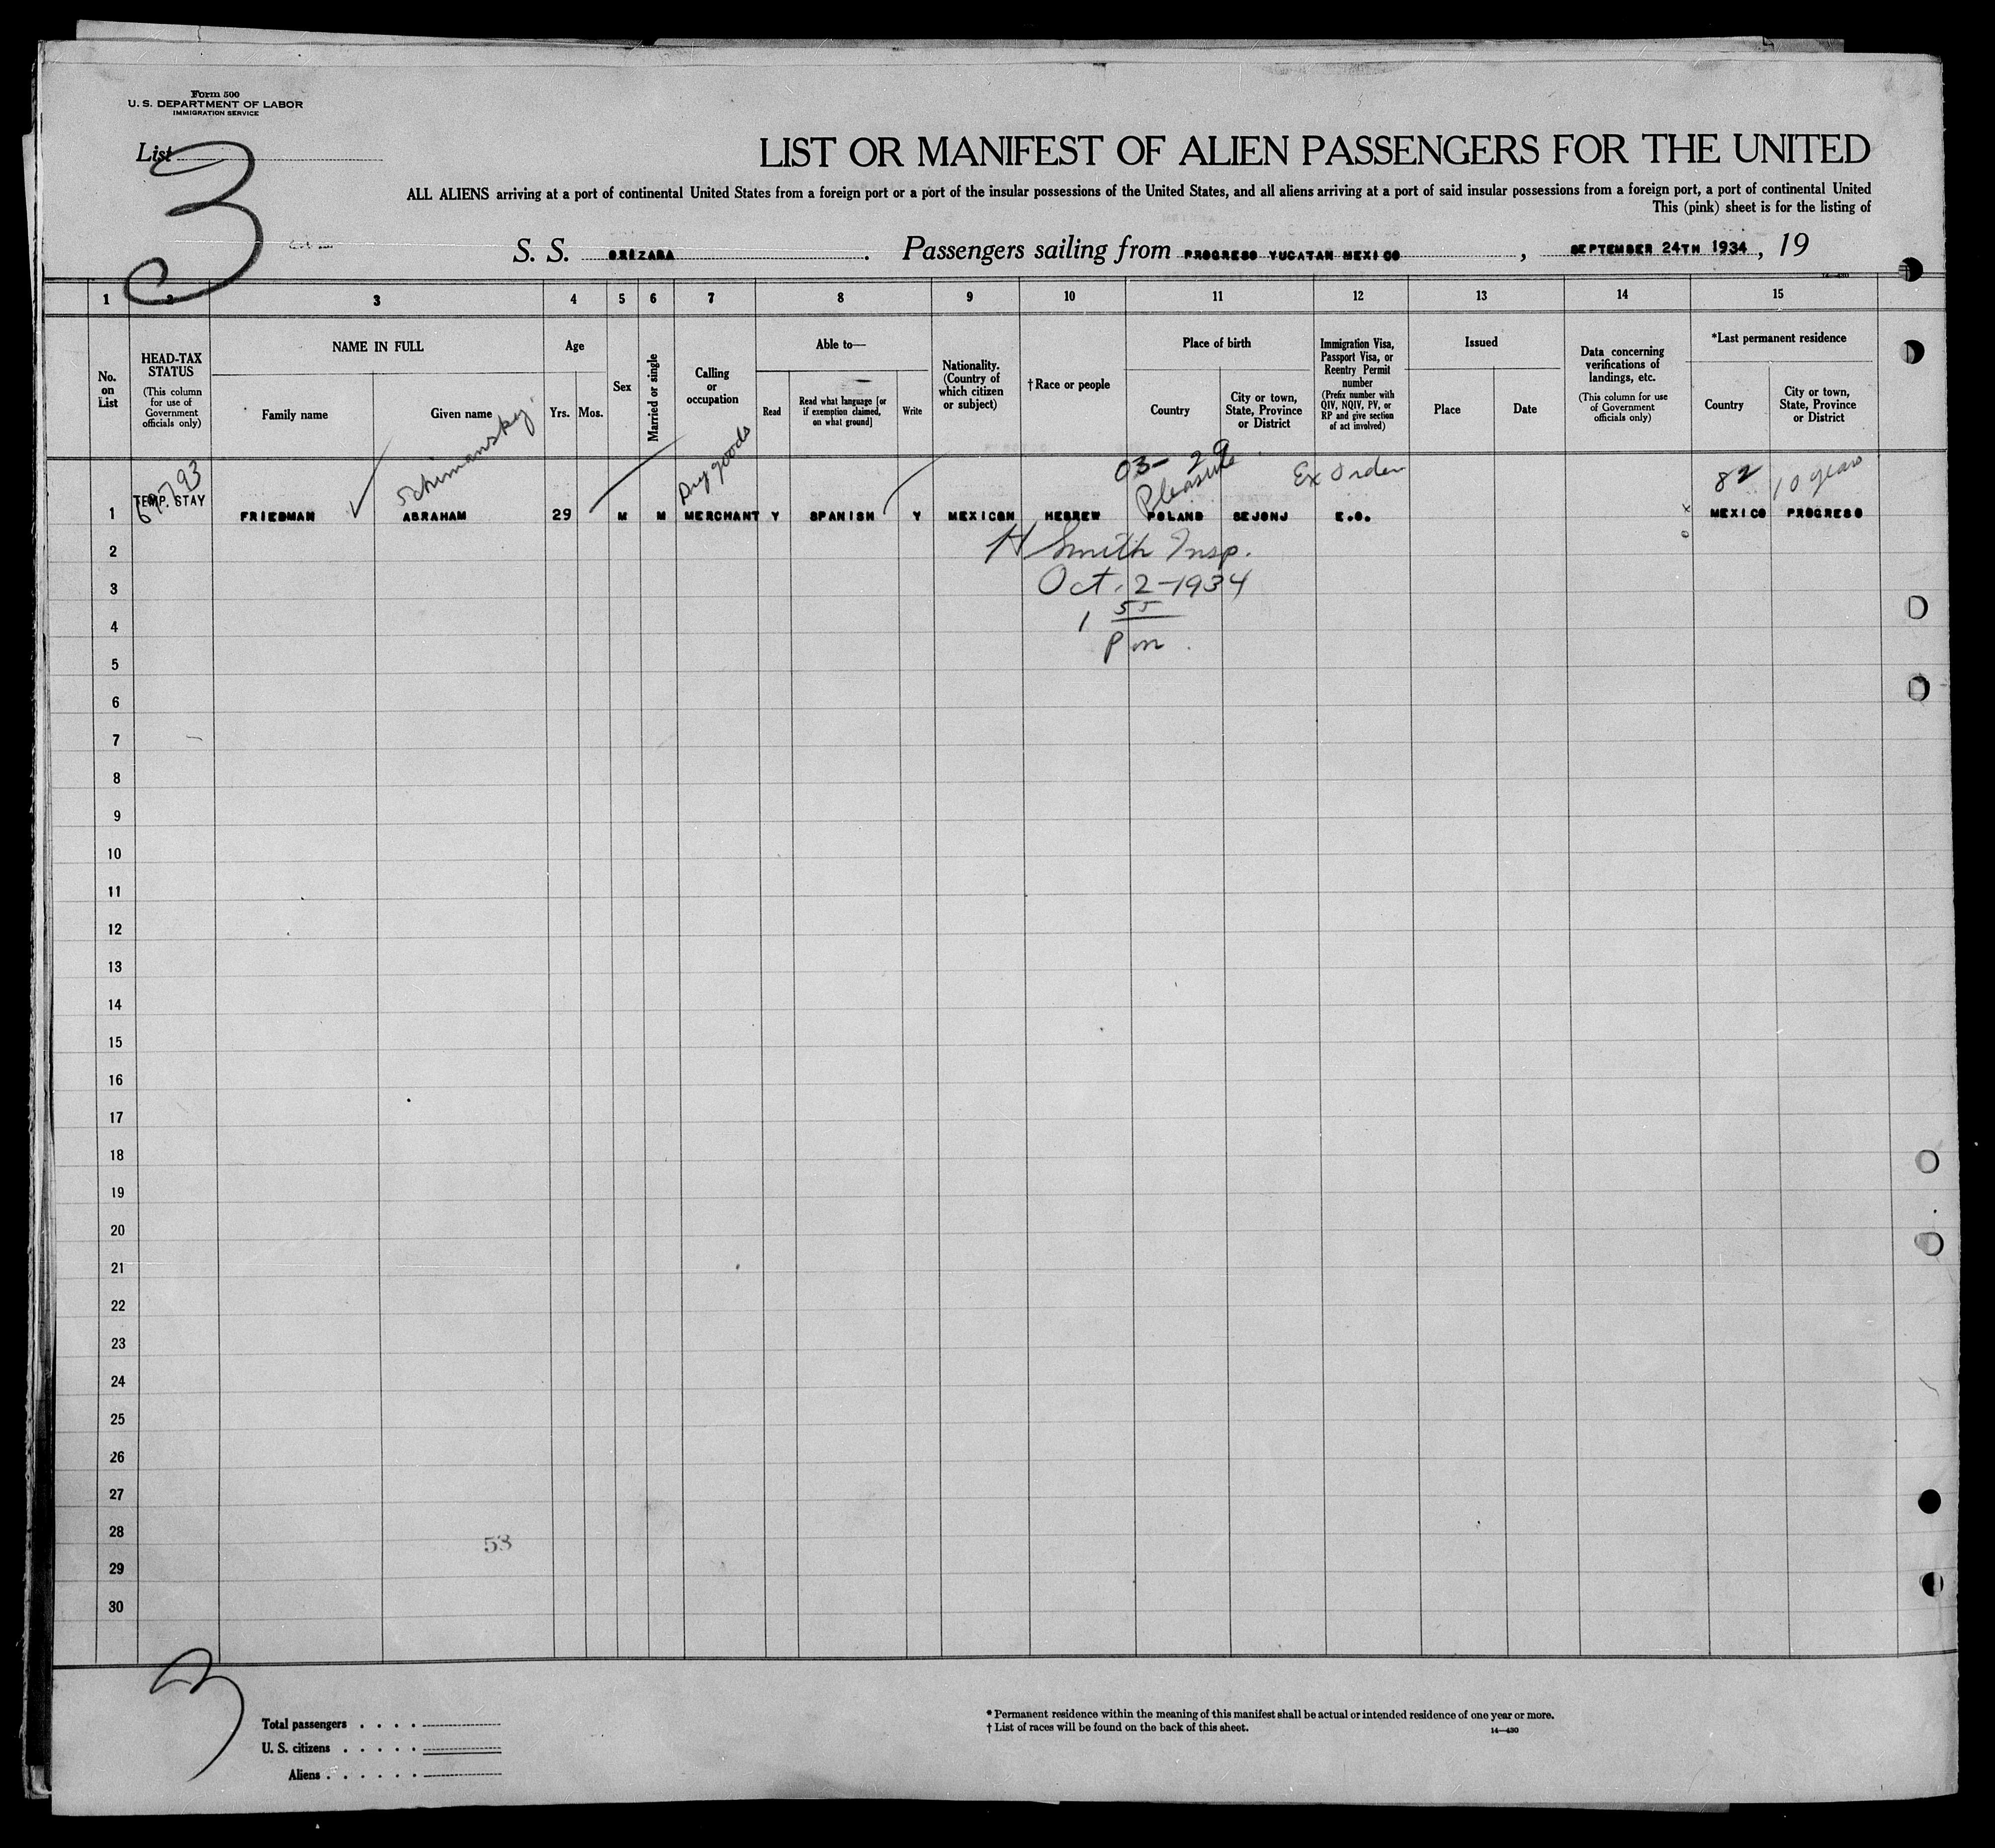 Form 500
U. S. DEPARTMENT OF LABOR
IMMIGRATION SERVICE
List
3
LIST OR MANIFEST OF ALIEN PASSENGERS FOR THE UNITED
ALL ALIENS arriving at a port of continental United States from a foreign port or a port of the insular possessions of the United States, and all aliens arriving at a port of said insular possessions from a foreign port, a port of continental United
This (pink) sheet is for the listing of
S. S. ORIZABA. Passengers sailing from PROGRESO YUCATAN MEXICO, SEPTEMBER 24TH 1934, 19
14—430
1 2 3 4 5 6 7 8 9 10 11 12 13 14 15
No. on List
HEAD-TAX STATUS
(This column for use of Government officials only)
NAME IN FULL
Family name
Given name
Age
Yrs. Mos.
Sex
Married or single
Calling or occupation
Able to—
Read
Read what language [or if exemption claimed, on what ground]
Write
Nationality. (Country of which citizen or subject)
†Race or people
Place of birth
Country
City or town, State, Province or District
Immigration Visa, Passport Visa, or Reentry Permit number
(Prefix number with QIV, NQIV, PV, or RP and give section of act involved)
Issued
Place
Date
Data concerning verifications of landings, etc.
(This column for use of Government officials only)
*Last permanent residence
Country
City or town, State, Province or District
Schimansky
Dry goods
03- 29
Pleasure
Ex Order
82
10 years
1 TEMP. STAY FRIEDMAN ABRAHAM 29 M M MERCHANT Y SPANISH Y MEXICAN HEBREW POLAND SEJONJ E.O. MEXICO PROGRESO
2
H Smith Insp.
3
Oct. 2-1934
4
1 55
pm
5
6
7
8
9
10
11
12
13
14
15
16
17
18
19
20
21
22
23
24
25
26
27
28
53
29
30
3
Total passengers
U. S. citizens
Aliens
* Permanent residence within the meaning of this manifest shall be actual or intended residence of one year or more.
† List of races will be found on the back of this sheet.
14—430